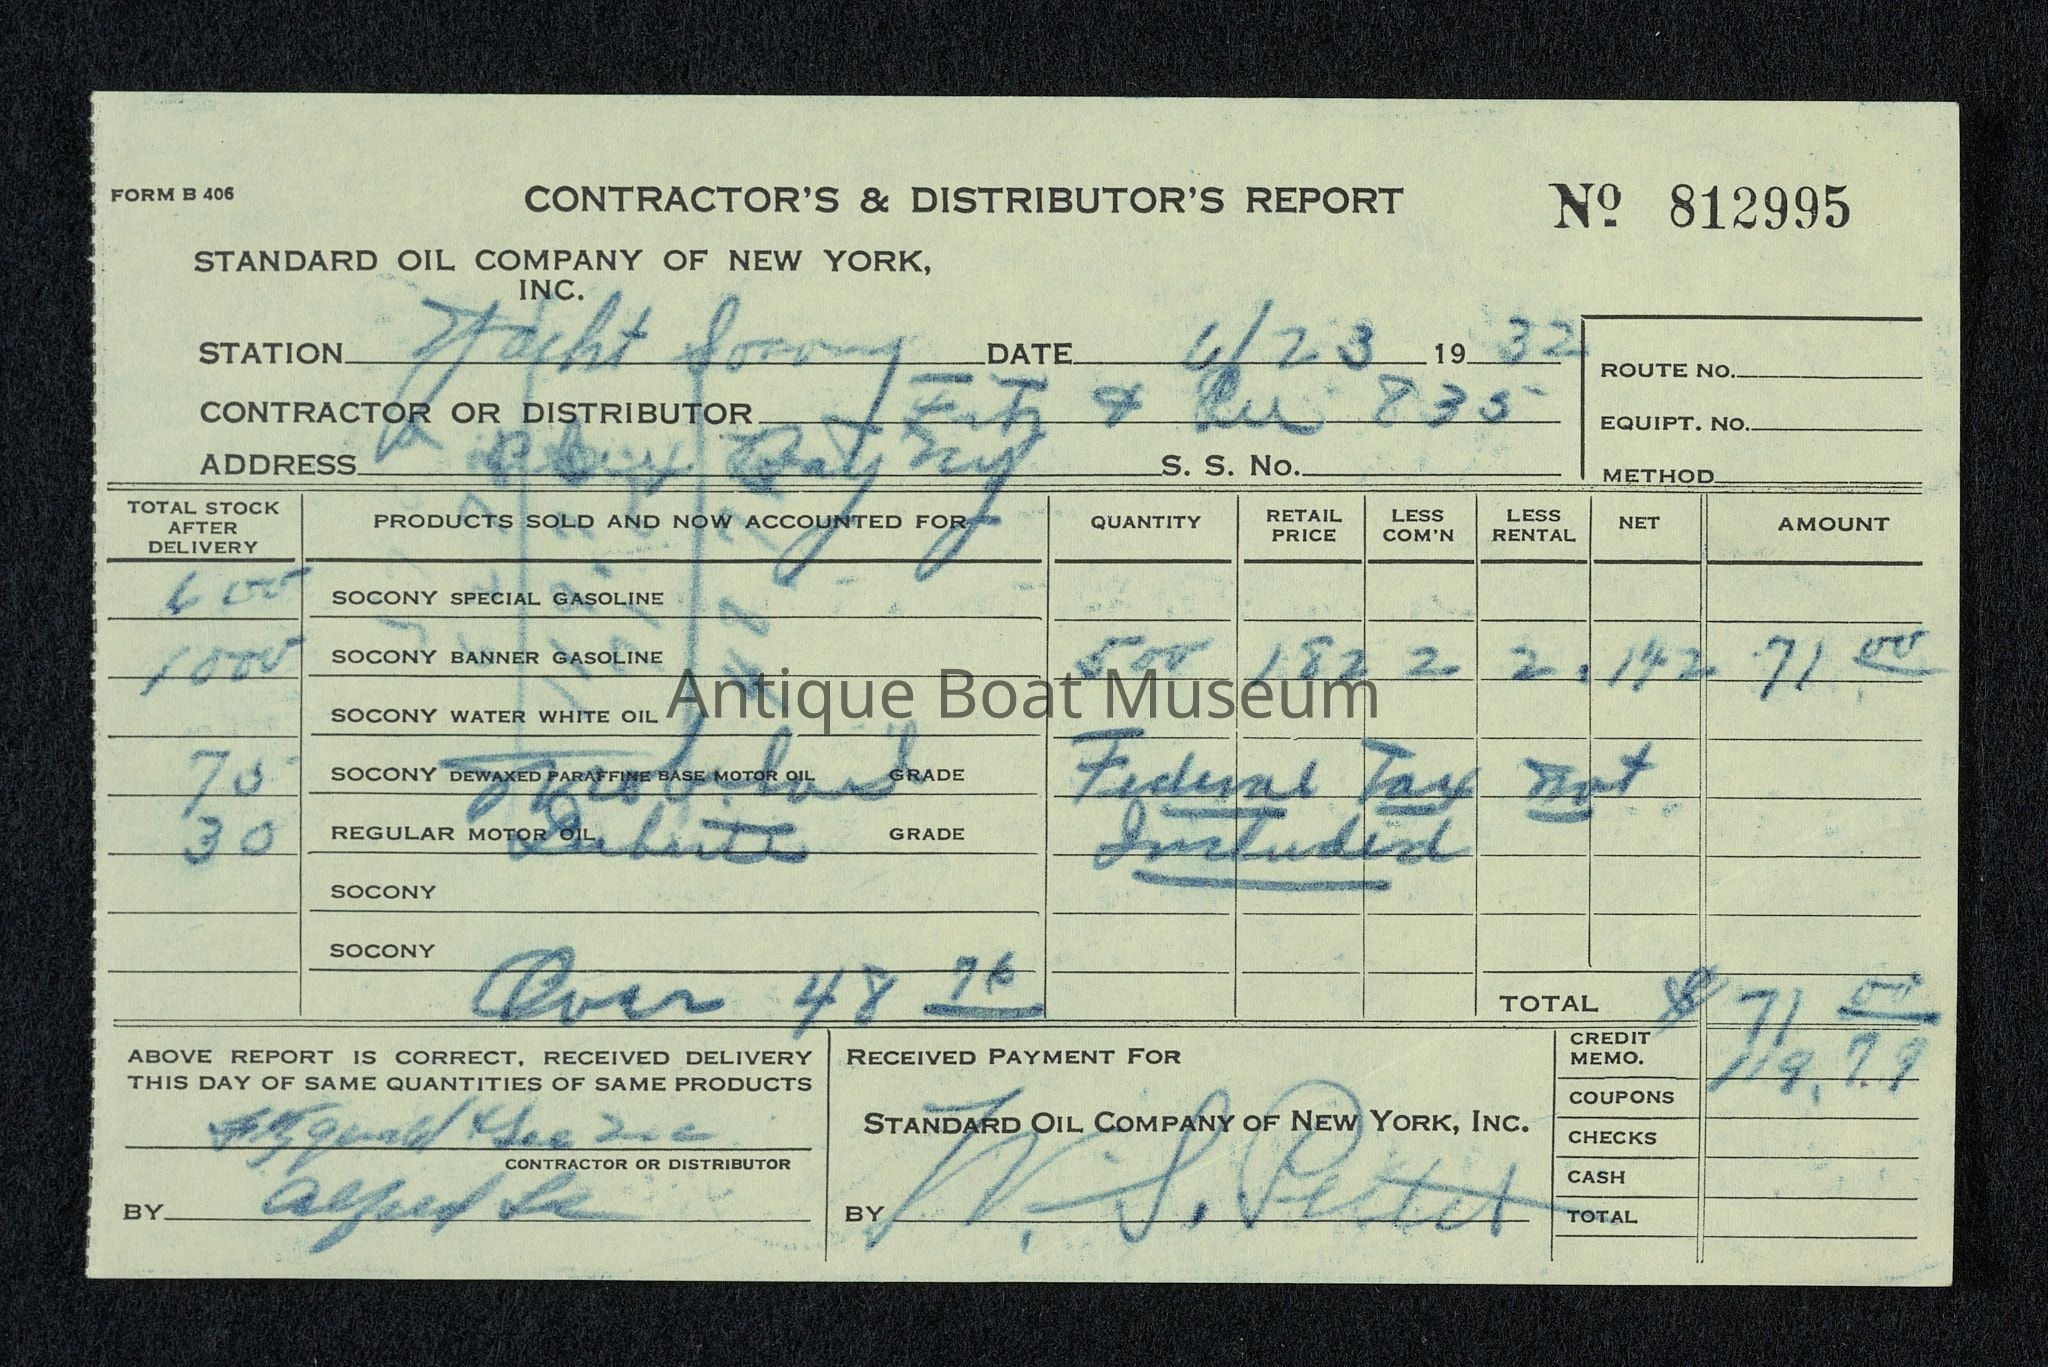 FORM B 406
CONTRACTOR'S & DISTRIBUTOR'S REPORT
Nº 812995
STANDARD OIL COMPANY OF NEW YORK,
INC.
STATION Yacht Socony DATE 6/23 1932
CONTRACTOR OR DISTRIBUTOR Fitz & Lee 835
ADDRESS Alex Bay NY S. S. No.
ROUTE No.
EQUIPT. No.
METHOD
TOTAL STOCK AFTER DELIVERY PRODUCTS SOLD AND NOW ACCOUNTED FOR QUANTITY RETAIL PRICE LESS COM'N LESS RENTAL NET AMOUNT
600 SOCONY SPECIAL GASOLINE
1000 SOCONY BANNER GASOLINE 500 182 2 2 .142 71 00
SOCONY WATER WHITE OIL
Antique Boat Museum
75 SOCONY DEWAXED PARAFFINE BASE MOTOR OIL GRADE Federal Tax not
30 REGULAR MOTOR OIL GRADE Included
SOCONY
SOCONY
Over 48 76
TOTAL $ 71 00
ABOVE REPORT IS CORRECT, RECEIVED DELIVERY
THIS DAY OF SAME QUANTITIES OF SAME PRODUCTS
Fitzgerald & Lee Inc
CONTRACTOR OR DISTRIBUTOR
BY Alfred Le
RECEIVED PAYMENT FOR
STANDARD OIL COMPANY OF NEW YORK, INC.
BY W. S.
CREDIT MEMO. 119.79
COUPONS
CHECKS
CASH
TOTAL